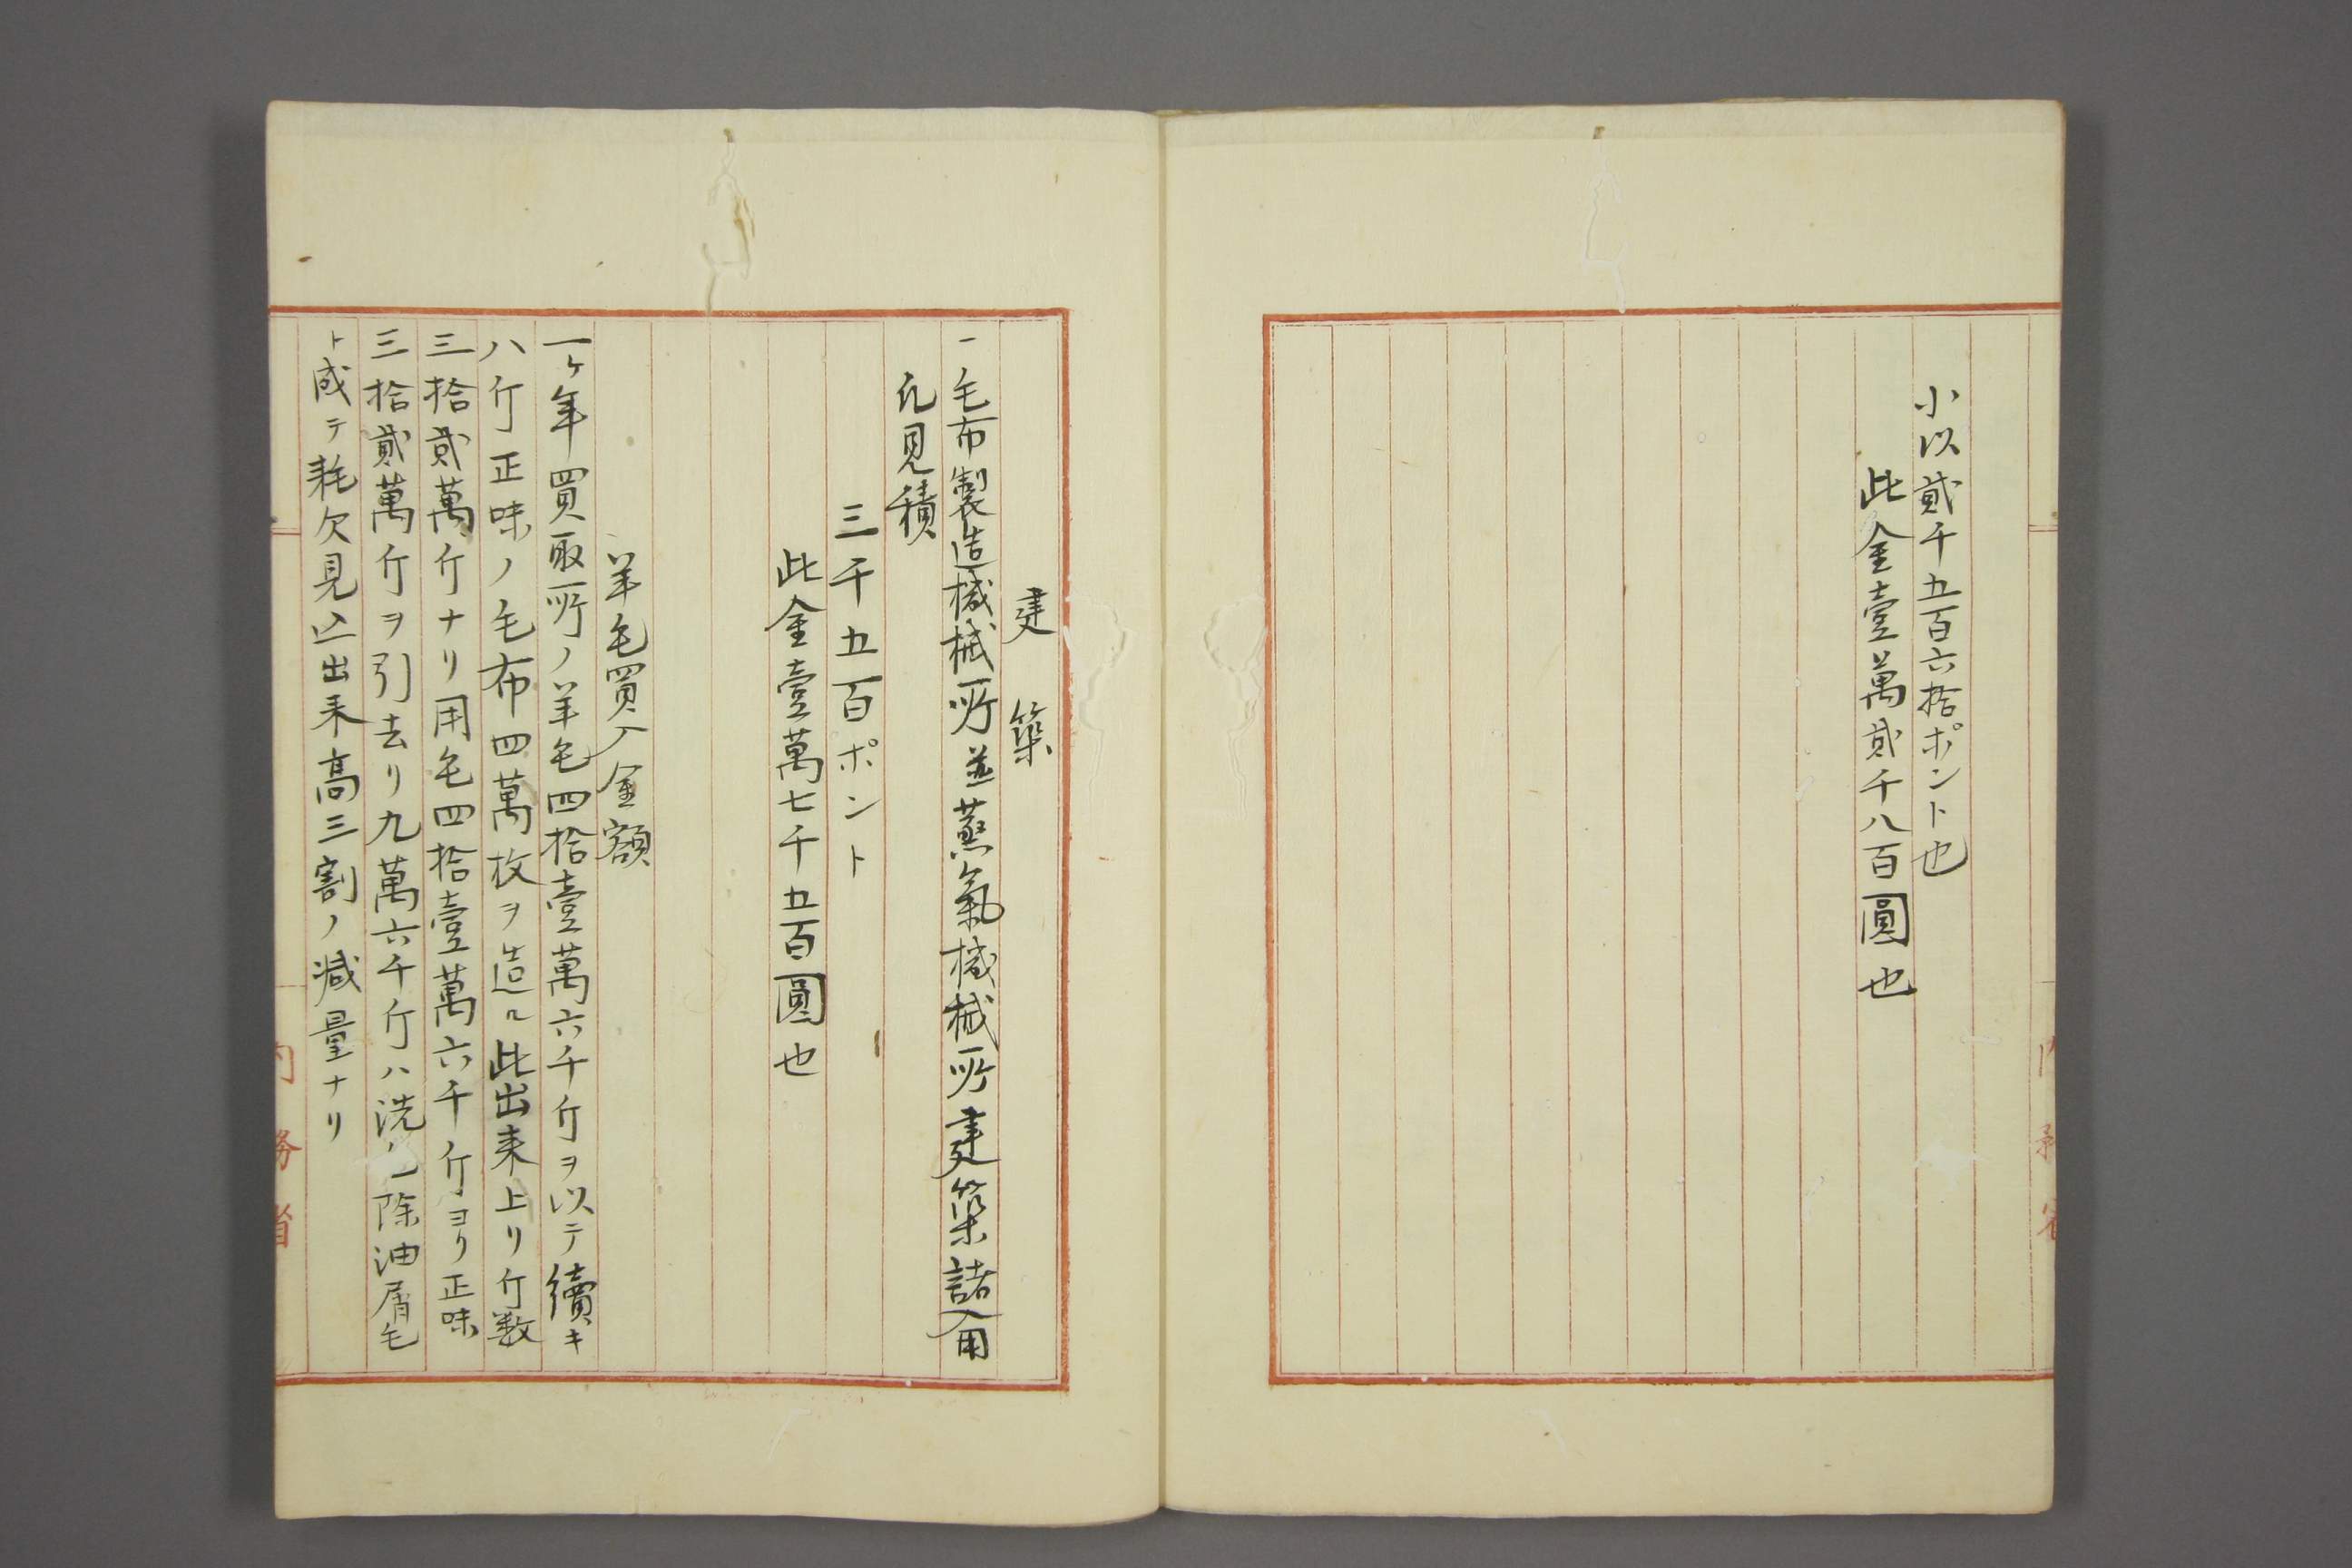 小以貳千五百六拾ポント也
此金壹萬貳千八百圓也
建築
一毛布製造機械所並蒸氣機械所建築諸入用
凡見積
三千五百ポント
此金壹萬七千五百圓也
羊毛買入金額
一ヶ年買取所ノ羊毛四拾壹萬六千斤ヲ以テ續キ
八斤正味ノ毛布四萬枚ヲ造ル此出来上リ斤数
三拾貳萬斤ナリ用毛四拾壹萬六千斤ヨリ正味
三拾貳萬斤ヲ引去リ九萬六千斤ハ洗毛除油屑毛
ト成テ耗欠見込出来高三割ノ減量ナリ
内務省